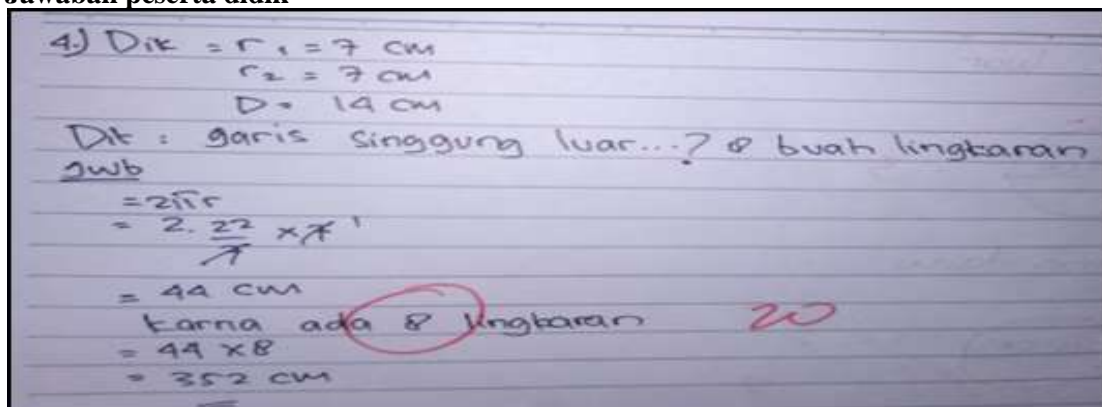 Jawaban peserta didik
4.) Dik = r₁ = 7 cm
r₂ = 7 cm
D = 14 cm
Dit : garis singgung luar...? 8 buah lingkaran
Jwb
= 2πr
= 2. 22/7 × 7 1
= 44 cm
karna ada 8 lingkaran 20
= 44 × 8
= 352 cm